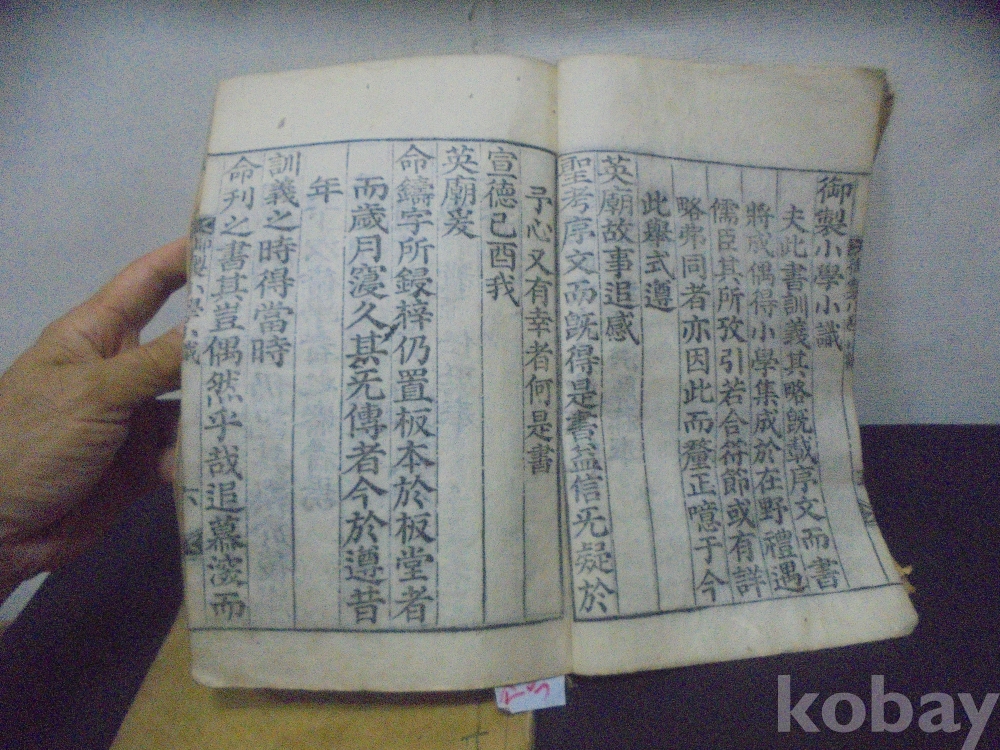 御製小學小識
夫此書訓義其略旣載序文而書
將成偶得小學集成於在野禮遇
儒臣其所攷引若合符節或有詳
略弗同者亦因此而釐正噫于今
此舉式遵
英廟故事追感
聖考序文而旣得是書益信无疑於
予心又有幸者何是書
宣德己酉我
英廟爰
命鑄字所鋟梓仍置板本於板堂者
而歲月寖久其无傳者今於遵昔
年
訓義之時得當時
命刊之書其豈偶然乎哉追慕深而
御製小學小識
六
kobay